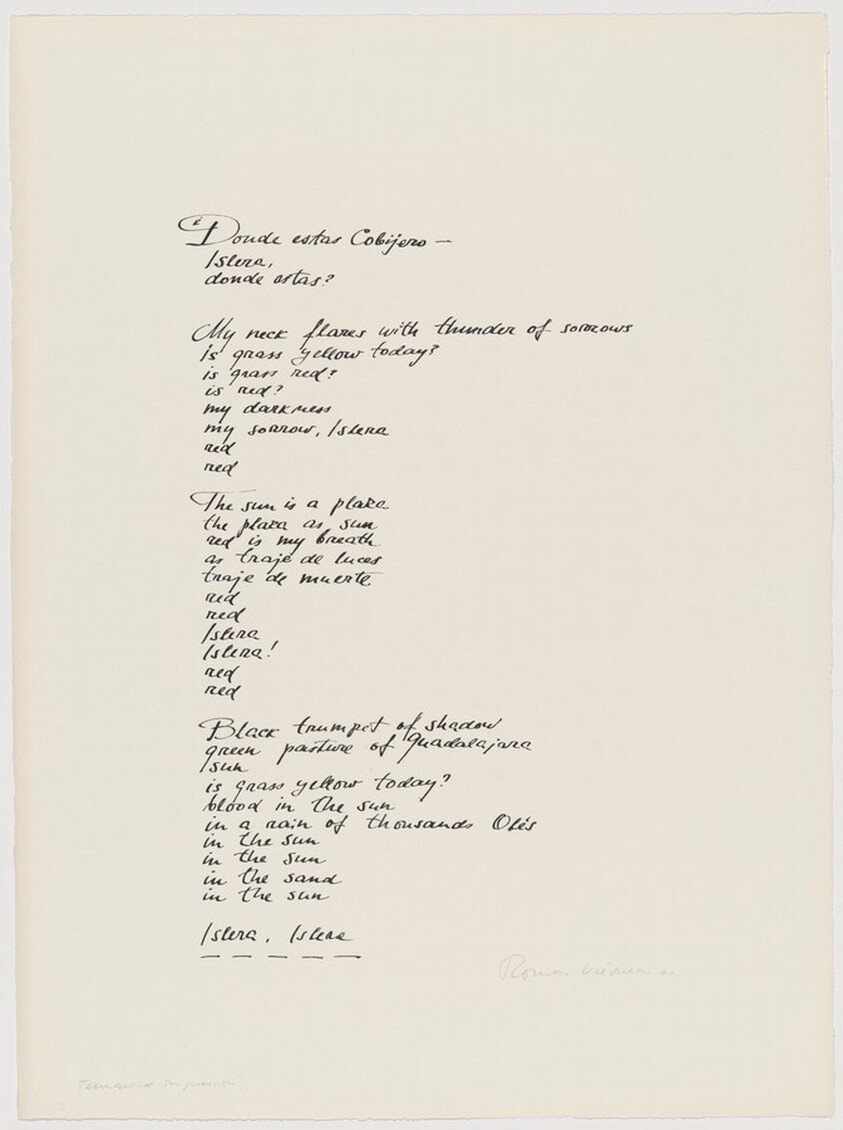 ¿Donde estas Cobijero —
Islera,
donde estas?
My neck flares with thunder of sorrows
is grass yellow today?
is grass red?
is red?
my darkness
my sorrow, Islera
red
red
The sun is a plaza
the plaza as sun
red is my breath
as traje de luces
traje de muerte
red
red
Islera
Islera!
red
red
Black trumpet of shadow
green pasture of Guadalajara
sun
is grass yellow today?
blood in the sun
in a rain of thousands Olés
in the sun
in the sun
in the sand
in the sun
Islera, Islera
Tamarind Impression